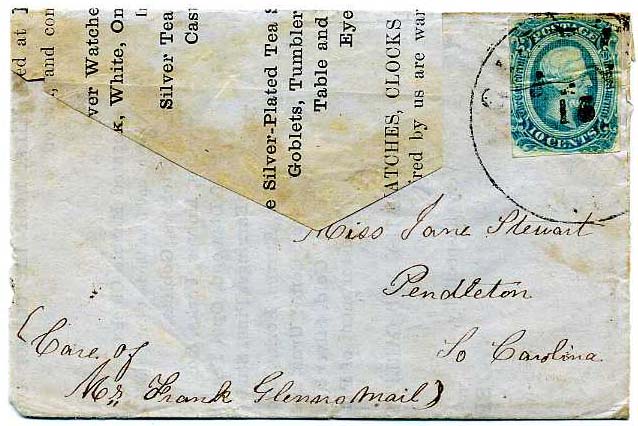 ed at
, and con
ver Watche
k, White, On
Silver Tea
Cas
e Silver-Plated Tea S
Goblets, Tumbler
Table and
Eye
ATCHES, CLOCKS
red by us are war
POSTAGE
18
10 CENTS
Miss Jane Stewart
Pendleton
So Carolina
(Care of
Mr Frank Glenns Mail)